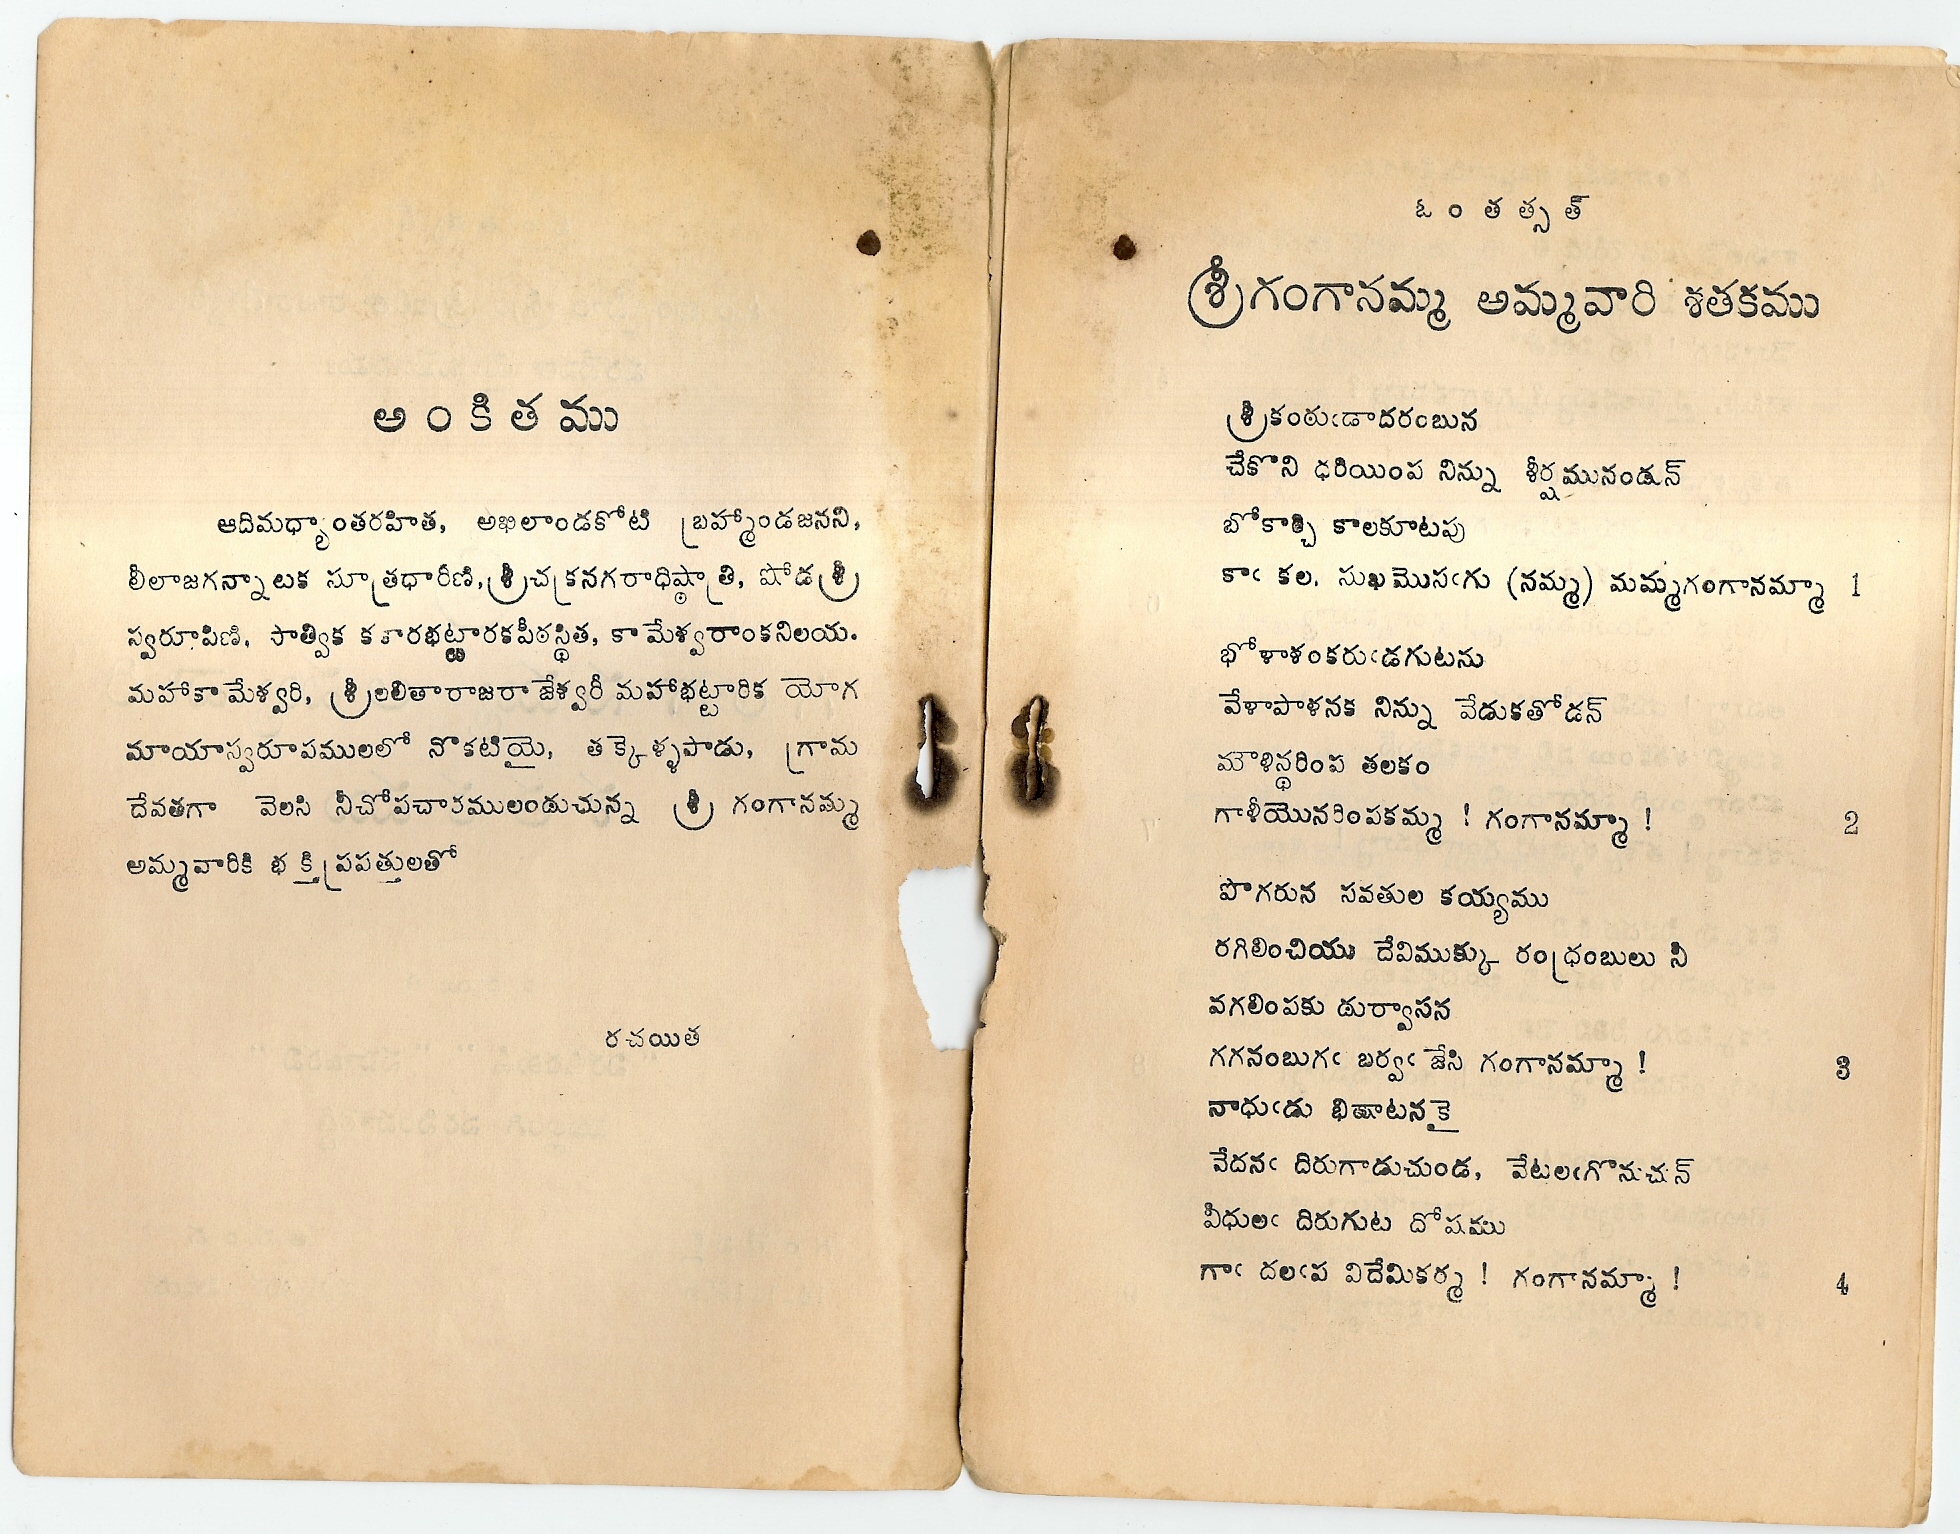 అంకితము
ఆదిమధ్యాంతరహిత, అఖిలాండకోటి బ్రహ్మాండజనని,
లీలాజగన్నాటక సూత్రధారీణి, శ్రీచక్రనగరాధిష్ఠాత్రి, షోడశ్రీ
స్వరూపిణి, సాత్విక కకారభట్టారకపీఠస్థిత, కామేశ్వరాంకనిలయ.
మహాకామేశ్వరి, శ్రీలలితారాజరాజేశ్వరీ మహాభట్టారిక యోగ
మాయాస్వరూపములలో నొకటియై, తక్కెళ్ళపాడు, గ్రామ
దేవతగా వెలసి నీచోపచారములందుచున్న శ్రీ గంగానమ్మ
అమ్మవారికి భక్తిప్రపత్తులతో
రచయిత
ఓం తత్సత్
శ్రీగంగానమ్మ అమ్మవారి శతకము
శ్రీకంఠుఁడాదరంబున
చేకొని ధరియింప నిన్ను శీర్షమునందున్
బోకార్చి కాలకూటపు
కాఁ కల. సుఖమొసఁగు (నమ్మ) మమ్మగంగానమ్మా 1
భోళాళంకరుఁడగుటను
వేళాపాళనక నిన్ను వేడుకతోడన్
మౌళిన్ధరింప తలకం
గాళీయొనరింపకమ్మ ! గంగానమ్మా ! 2
పొగరున సవతుల కయ్యము
రగిలించియు దేవిముక్కు రంధ్రంబులు నీ
వగలింపకు దుర్వాసన
గగనంబుగఁ బర్వఁ జేసి గంగానమ్మా ! 3
నాధుఁడు భిక్షాటనకై
వేదనఁ దిరుగాడుచుండ, వేటలఁగొనుచున్
వీధులఁ దిరుగుట దోషము
గాఁ దలఁప విదేమికర్మ ! గంగానమ్మా ! 4